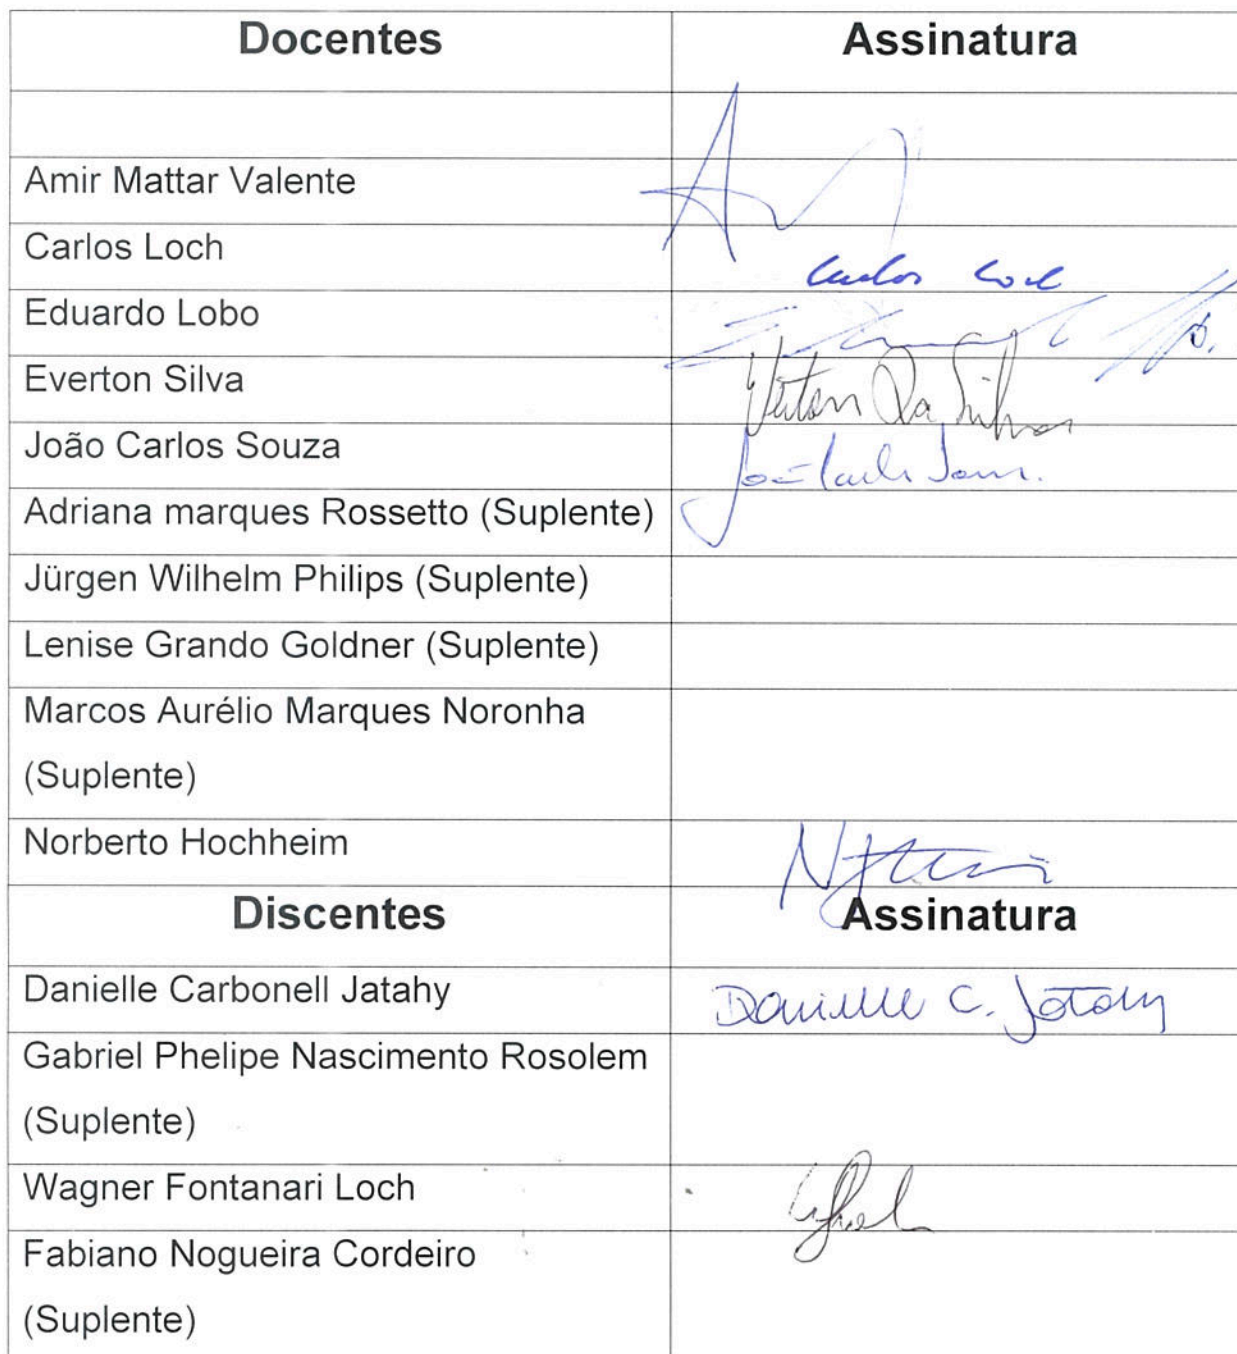 Docentes Assinatura
Amir Mattar Valente
Carlos Loch
Eduardo Lobo
Everton Silva
João Carlos Souza
Adriana marques Rossetto (Suplente)
Jürgen Wilhelm Philips (Suplente)
Lenise Grando Goldner (Suplente)
Marcos Aurélio Marques Noronha
(Suplente)
Norberto Hochheim
Discentes Assinatura
Danielle Carbonell Jatahy Danielle C. Jatahy
Gabriel Phelipe Nascimento Rosolem
(Suplente)
Wagner Fontanari Loch
Fabiano Nogueira Cordeiro
(Suplente)